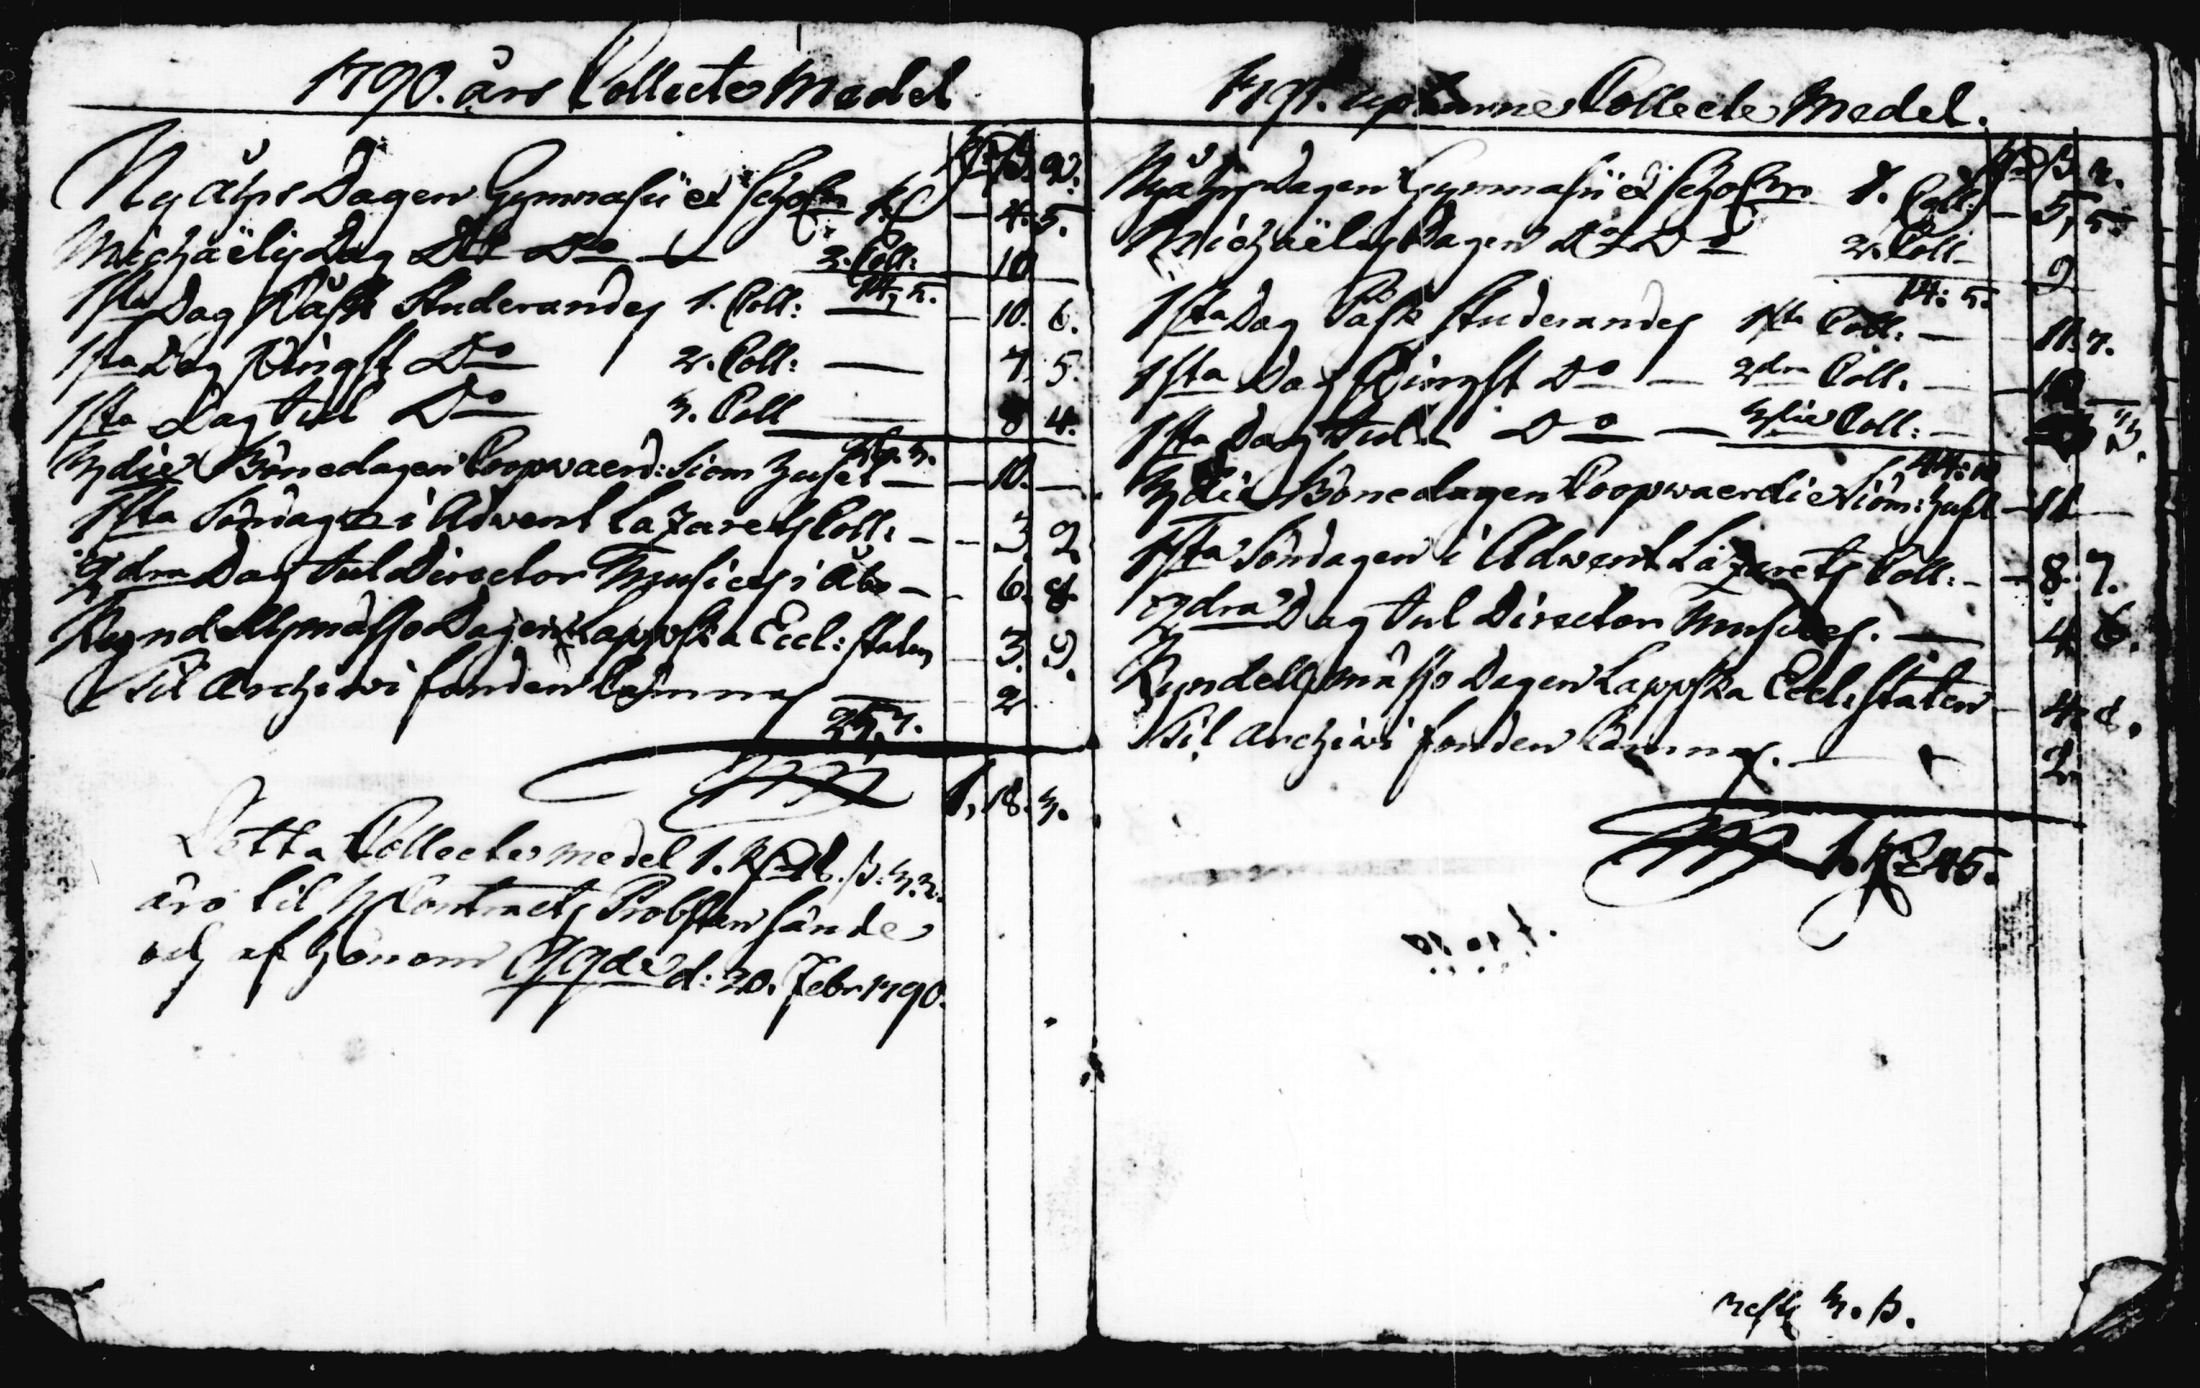 1790. års Collecte Medel
Rd. ß. r.
Ny åhrs Dagen Gymnasii et Scholm 1. C — 4. 5.
Michaëlis Dag Do Do — 2. Coll: 10 —
14, 5.
1sta Dag Påsk Studerandes 1. Coll: — 10. 6.
1sta Dag Pingst Do 2. Coll: — 7. 5.
1sta Dag Jul Do 3. Coll — 8 4.
26. 3.
3die Bönedagen Coopvaerd: Siöm husel — 10. —
1sta Söndagen i Advent Lazarets Coll: — 3. 2
2dra Dag Jul Director Musices i Åbo — 6. 8
Kyndelsmässo Dagen Lappska Eccl: staten — 3. 9.
Til Archivi fonden lämnas — 2
25. 7.
1, 18. 3.
Detta Collecte medel 1. Rd. 18. ß: 3. r.
äro til H Contracts Probsten sände
och af honom qvde d: 20. Febr 1790.
1791. upkomne Collecte Medel.
Rd ß r.
Nyåhrs Dagen Gymnasii et Scholm 1. Coll: — 5, 5.
Michaëlis Dagen Do Do 2. Coll — 9
14: 5.
1sta Dag Påsk Studerandes 1sta Coll: — 11. 7.
1sta Dag Pingst Do — 2dra Coll. —
1sta Dag Jul Do — 3die Coll: —
3die Bönedagen Coopvaerdie Siöm: husl — 11 —
1sta Söndagen i Advent Lazarets Coll: — 8. 7.
2dra Dag Jul Director Musices. — 4 6.
Kyndelsmässo Dagen Lappska Eccl. staten — 4. 8.
Til Archivi fonden lämnas. — 2.
1. Rd 45.
rest 3. ß.